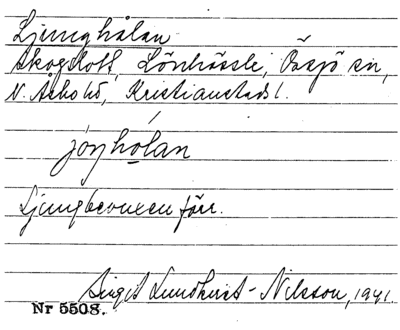 Ljunghålan
Skogstoft, Lönhässle, Össjö sn,
N. Åsbo hd, Kristianstads l.
jöŋholan
Ljungbevuxen förr.
Birgit Lundkvist-Nilsson, 1941.
Nr 5508.